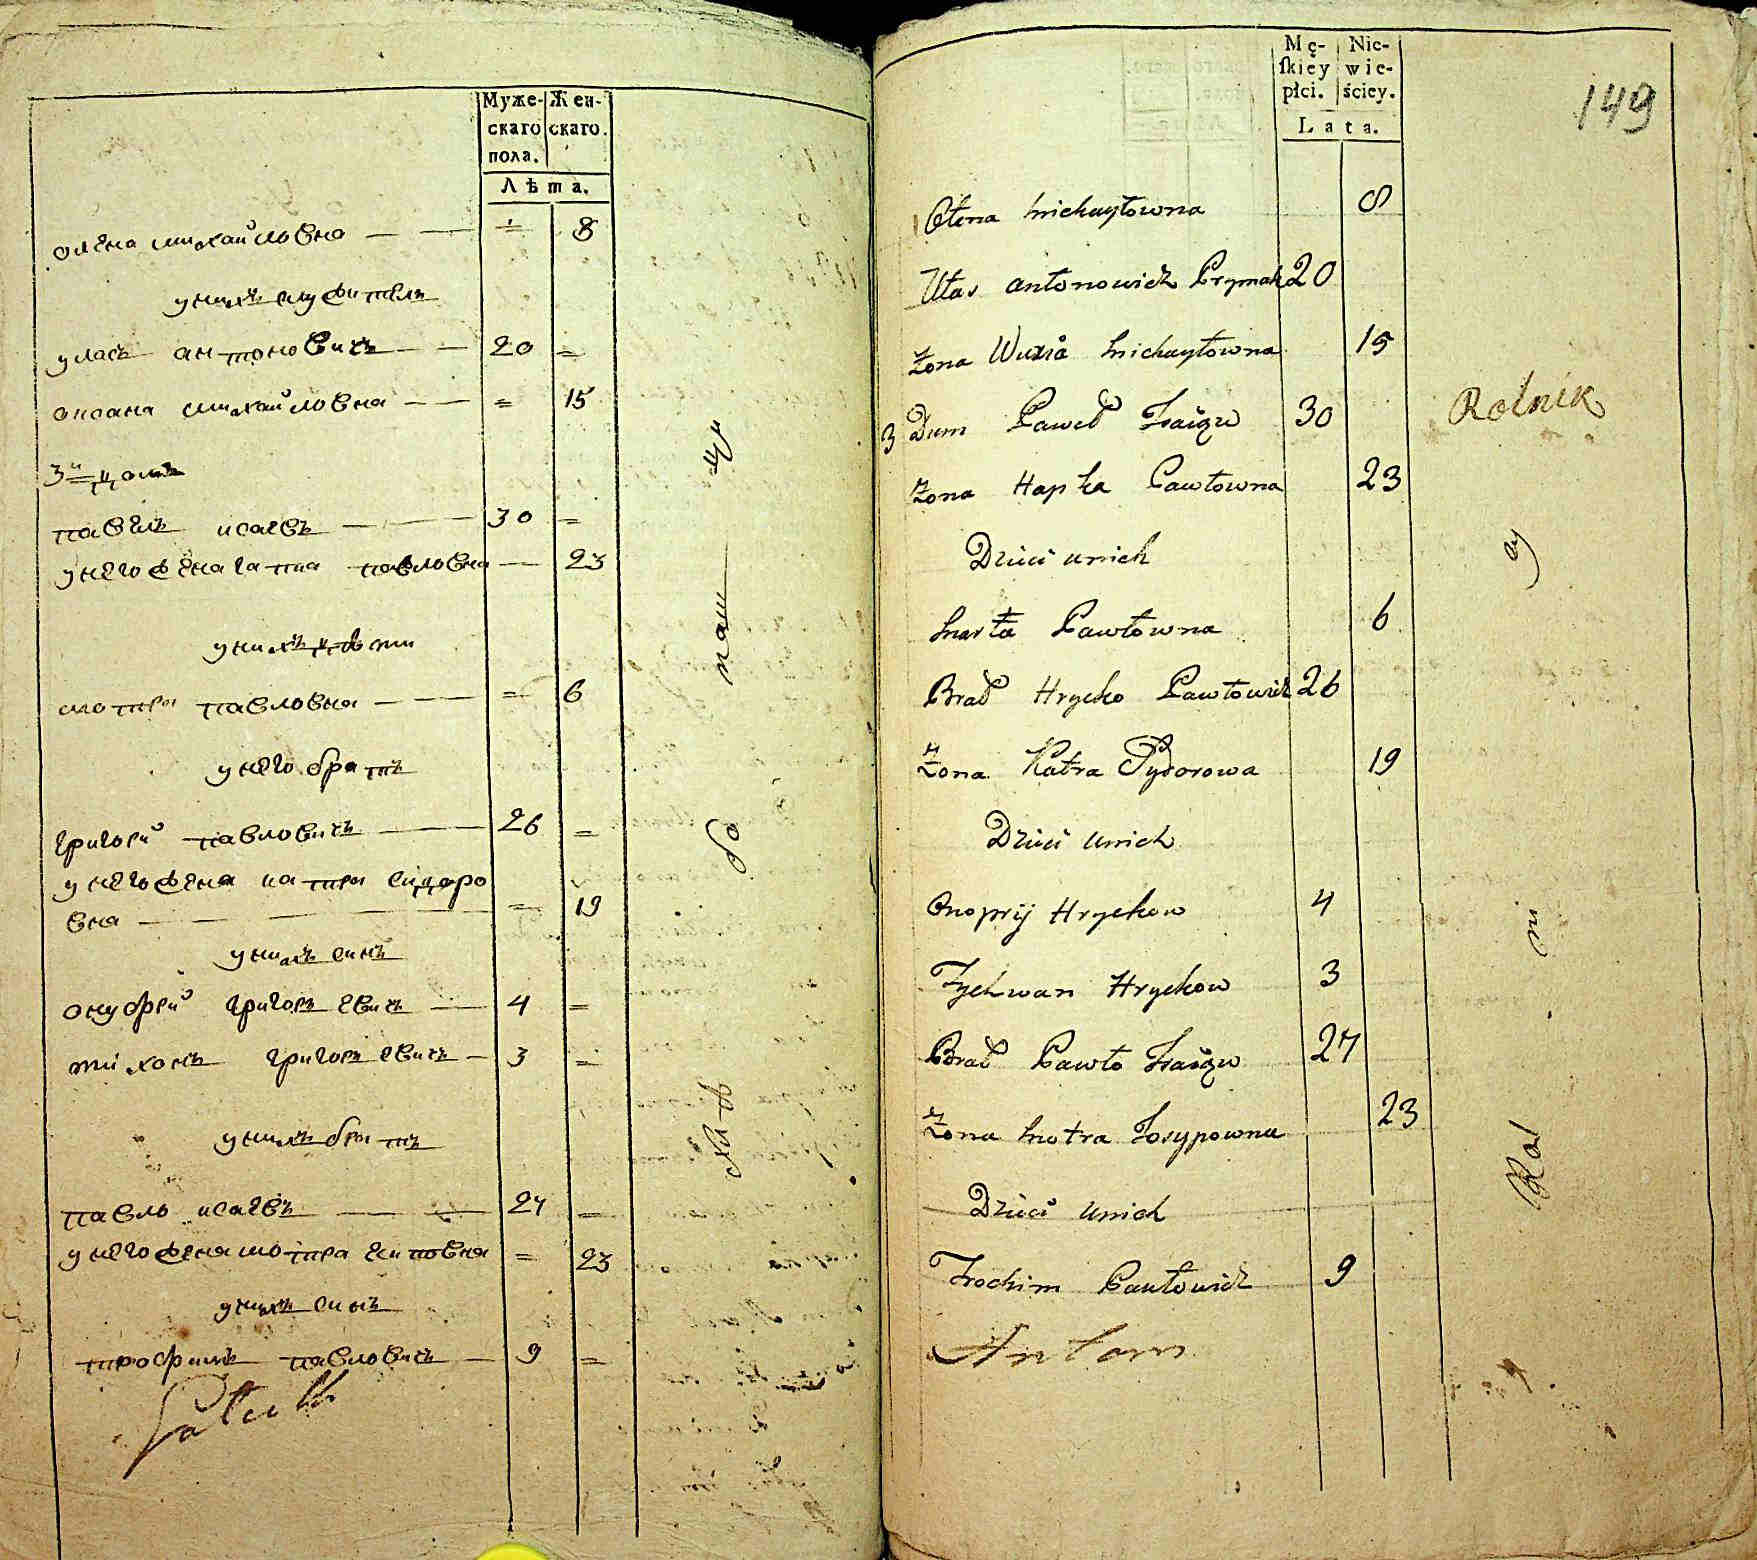 Муже- Жен-
скаго скаго.
пола.
Лѣта.
олена михайловна — — = 8
у нихъ служители
уласъ антоновичъ — — 20 =
оксана михайловна — — = 15
3й домъ
павелъ исаевъ — — — 30 =
у него жена гапка павловна — 23
у нихъ дѣти
мотря павловна — — — = 6
у него братъ
григорий павловичъ — — 26 =
у него жена катря сидоро
вна — — — = 19
у нихъ синъ
онуфрий григорьевичъ — 4 =
тихонъ григорьевичъ — 3 =
у нихъ братъ
павло исаевъ — — — 27 =
у него жена мотря есиповна = 23
у нихъ синъ
трофимъ павловичъ — 9 =
хлѣ бо паш
Mę- Nie-
ſkiey wie-
płci. ściey.
Lata.
149
Olena Michayłowna 8
Ułas Antonowicz Prymak 20
Żona Michayłowna 15
3 Dum Paweł Isaiow 30 Rolnik
Żona Hapka Pawłowna 23
Dzieci u nich
Pawłowna 6
Brat Hrycko Pawłowicz 26
Żona Katra Sydorowa 19
Dzieci u nich
Onopry Hryckow 4
Tychwan Hryckow 3
Brat Pawło Isaiow 27
Żona Motra Josypowna 23
Dzieci u nich
Trochim Pawłowicz 9
Antoni
Rol ni